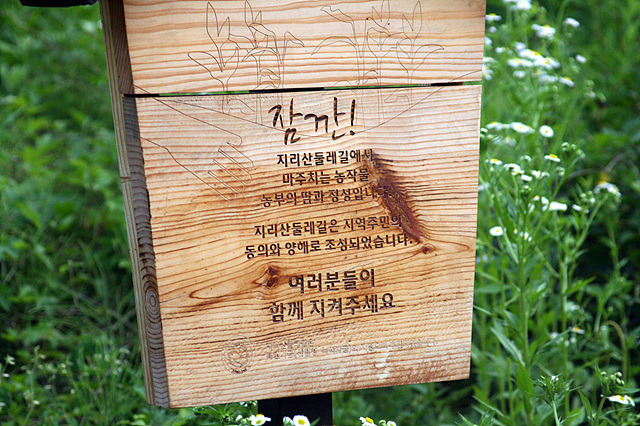 잠깐!
지리산둘레길에서
마주치는 농작물
농부의 땀과 정성입니다.
지리산둘레길은 지역주민의
동의와 양해로 조성되었습니다.
여러분들이
함께 지켜주세요